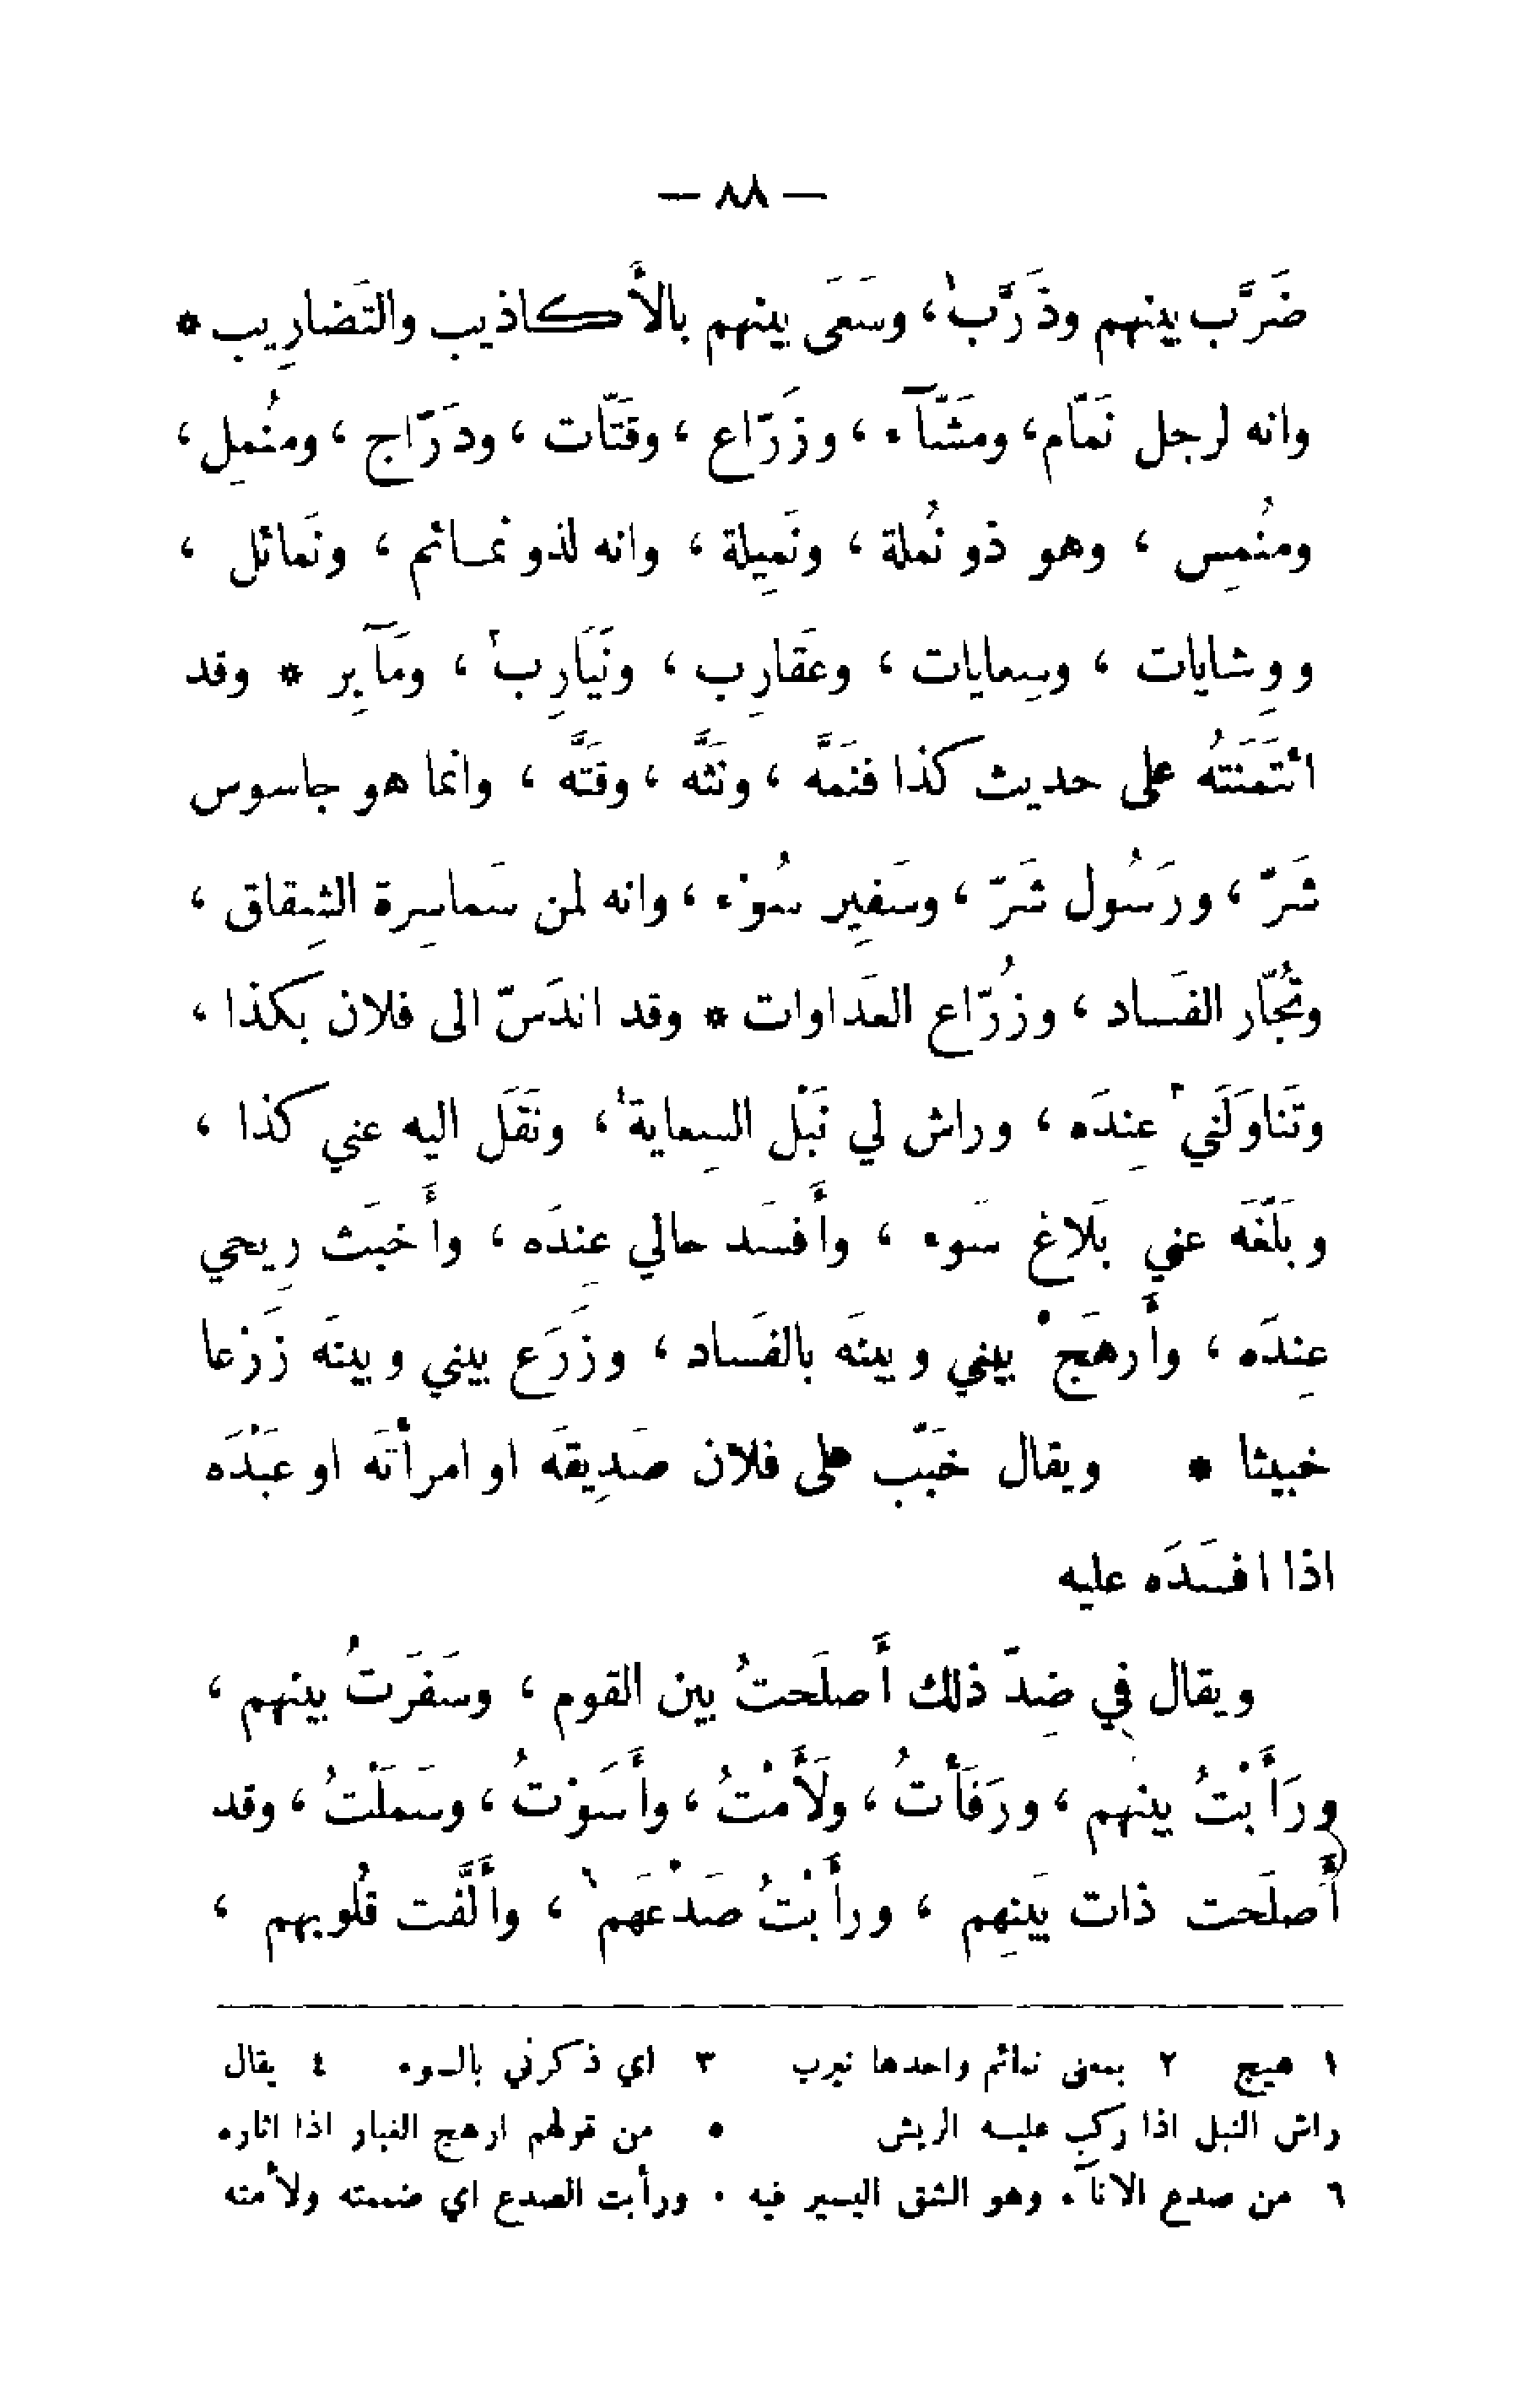 — ٨٨ —
ضَرَّب بينهم وذَرَّب١، وسَعَى بينهم بالأَكاذيب والتَضارِيب *
وانه لرجل نَمّام، ومَشّآء ، وزَرّاع ، وقَتّات ، ودَرّاج ، ومنُمِل ،
ومنُمِس ، وهو ذو نُملة ، ونَمِيلة ، وانه لذو نمائم ، ونَمائل ،
ووِشايات ، وسِعايات ، وعَقارِب ، ونَيَارِب٢ ، ومَآبِر * وقد
ائتَمَنَتهُ على حديث كذا فنَمَّه ، ونَثَّه ، وقَتَّه ، وانما هو جاسوس
شَرّ ، ورَسُول شَرّ ، وسَفِير سُوْء ، وانه لمن سَماسِرة الشِقاق ،
وتُجّار الفَساد ، وزُرّاع العَداوات * وقد اندَسّ الى فلان بكذا ،
وتَناوَلَني٣ عِندَه ، وراش لي نَبْل السِعاية٤ ، ونَقَل اليه عني كذا ،
وبَلّغَه عني بَلاغ سَوء ، وأَفسَد حالي عِندَه ، وأَخبَث رِيحي
عِندَه ، وأَرهَج٥ بيني وبينَه بالفَساد ، وزَرَع بيني وبينَه زَرْعا
خبيثا * ويقال خَبّب على فلان صَدِيقَه او امرأتَه او عَبْدَه
اذا افسَدَه عليه
ويقال في ضِدّ ذلك أَصلَحتُ بين القوم ، وسَفَرَتُ بينهم ،
ورَأَبْتُ بينهم ، ورَفَأتُ ، ولَأَمْتُ ، وأَسَوْتُ ، وسَمَلْتُ ، وقد
أَصلَحت ذات بَينِهم ، ورأَبْتُ صَدْعَهم٦ ، وأَلَّفت قُلوبهم ،
١ هيج ٢ بمعنى نمائم واحدها نيرب ٣ اي ذكرني بالسوء ٤ يقال
راش النبل اذا ركب عليه الريش ٥ من قولهم ارهج الغبار اذا اثاره
٦ من صدع الانآء وهو الشق اليسير فيه . ورأبت الصدع اي ضممته ولأمته